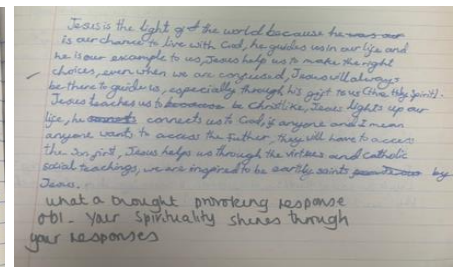 Jesus is the light of the world because he
is our chance to live with God, he guides us in our life and
he is our example to us, Jesus help us to make the right
choices, even when we are confused, Jesus will always
be there to guide us, especially through his gift to us (the Holy Spirit).
Jesus teaches us to be Christlike, Jesus lights up our
life, he connects us to God, if anyone and I mean
anyone wants to access the Father, they will have to access
the Son first, Jesus helps us through the virtues and catholic
social teachings, we are inspired to be earthly saints by
Jesus.
what a thought provoking response
Your Spirituality shines through
your responses